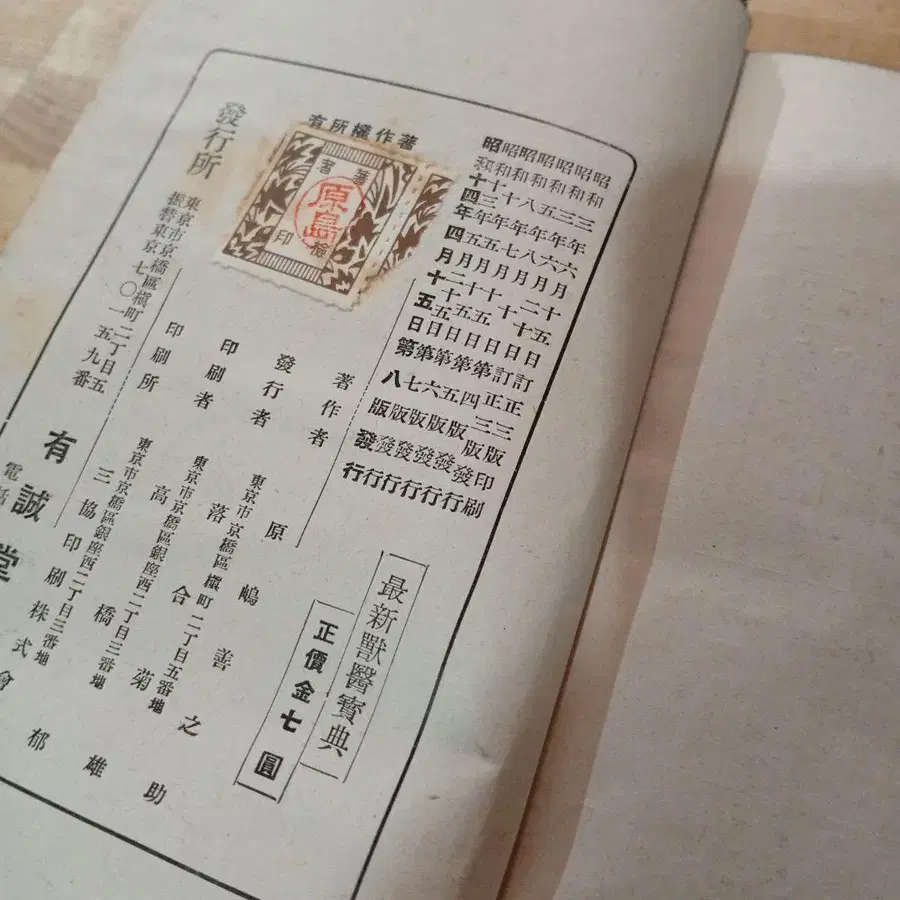 昭和三年六月十五日訂正三版印刷
昭和三年六月二十日訂正三版發行
昭和五年八月十日第四版發行
昭和八年七月十五日第五版發行
昭和十年五月十五日第六版發行
昭和十三年五月二十五日第七版發行
昭和十四年四月十五日第八版發行
最新獸醫寶典
正價金七圓
著作權所有
著者檢印
原島
著作者 原嶋善之助
發行者 東京市京橋區槇町二丁目五番地
落合菊雄
印刷者 東京市京橋區銀座西二丁目三番地
高橋郁
印刷所 東京市京橋區銀座西二丁目三番地
三協印刷株式會
發行所 東京市京橋區槇町二丁目五
振替東京七〇一五九番
有誠堂
電話